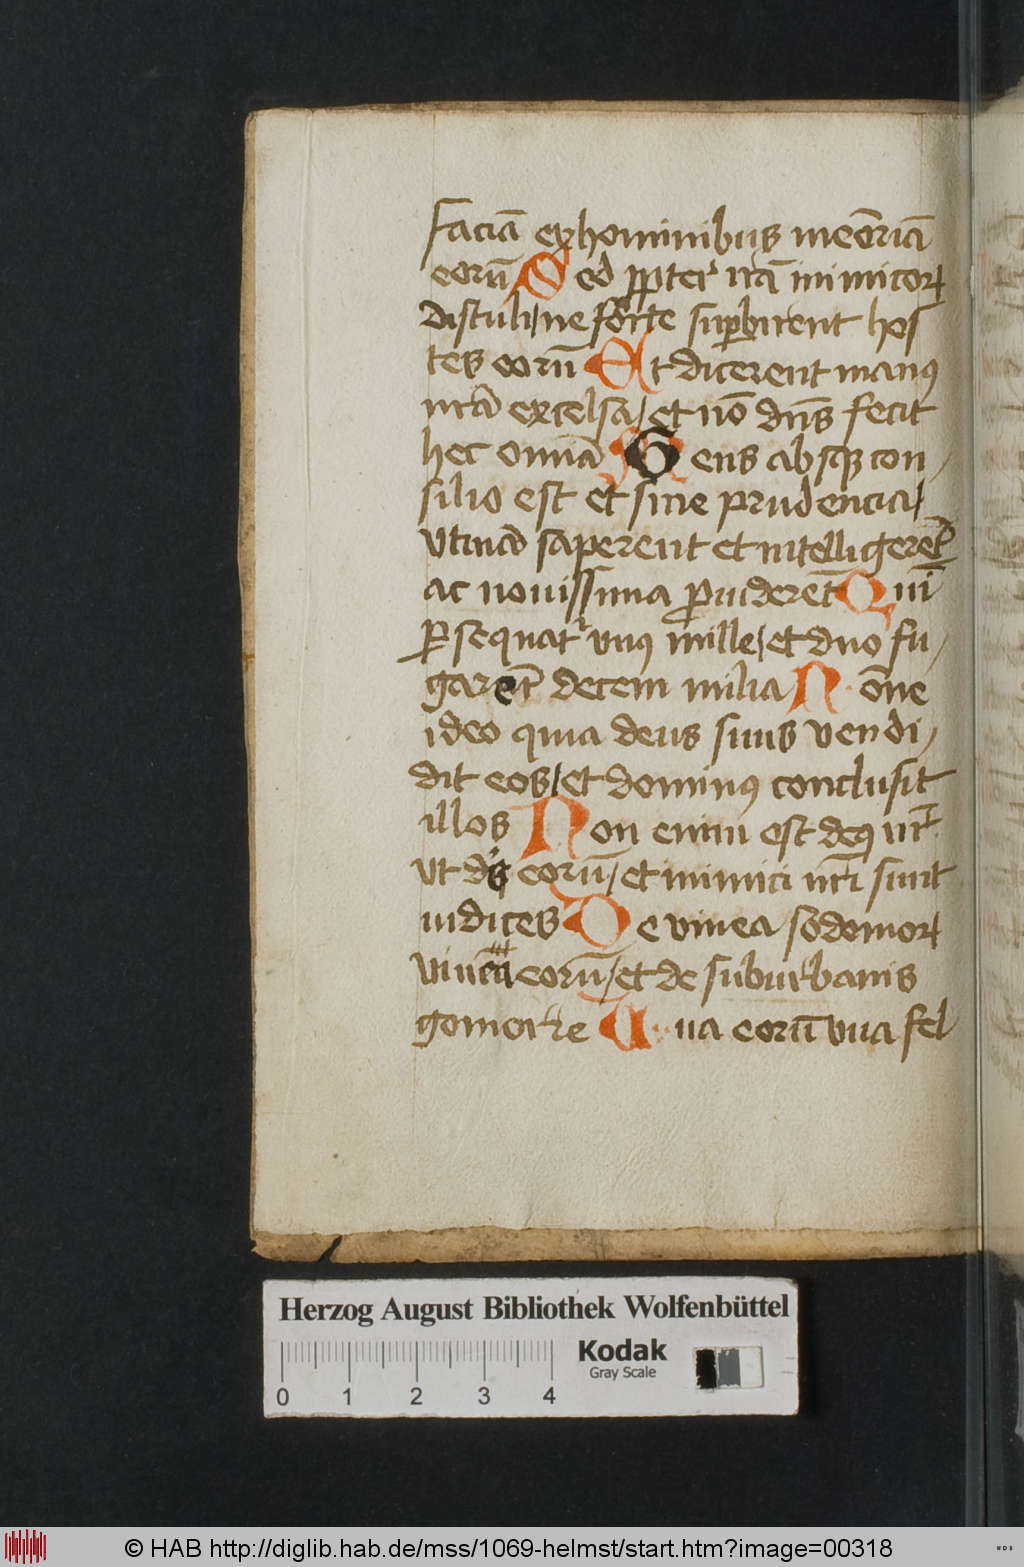 faciā ex hominibus meōriā
eorū Sed ꝓpter irā inimicoꝝ
distuli / ne forte suꝑbirent hos
tes eorū Et dicerent manꝰ
nrā excelsa / et nō dn̄s fecit
hec omīa Gens absqꝫ con /
silio est et sine prudencia /
vtinā saperent et intelligerēt
ac nouissima ꝓuiderēt Quō
ꝑsequatᷣ vnꝰ mille / et duo fu /
garēt decem milia Nōne
ideo quia deus suus vendi /
dit eos / et dominꝰ conclusit
illos Non enim est deꝰ nr̄
ut dij eorū / et inimici nrī sunt
iudices De vinea sodomoꝝ
vinea eorū / et de suburbanis
gomorre Vua eorū vua fel
Herzog August Bibliothek Wolfenbüttel
Kodak
Gray Scale
0 1 2 3 4
© HAB http://diglib.hab.de/mss/1069-helmst/start.htm?image=00318